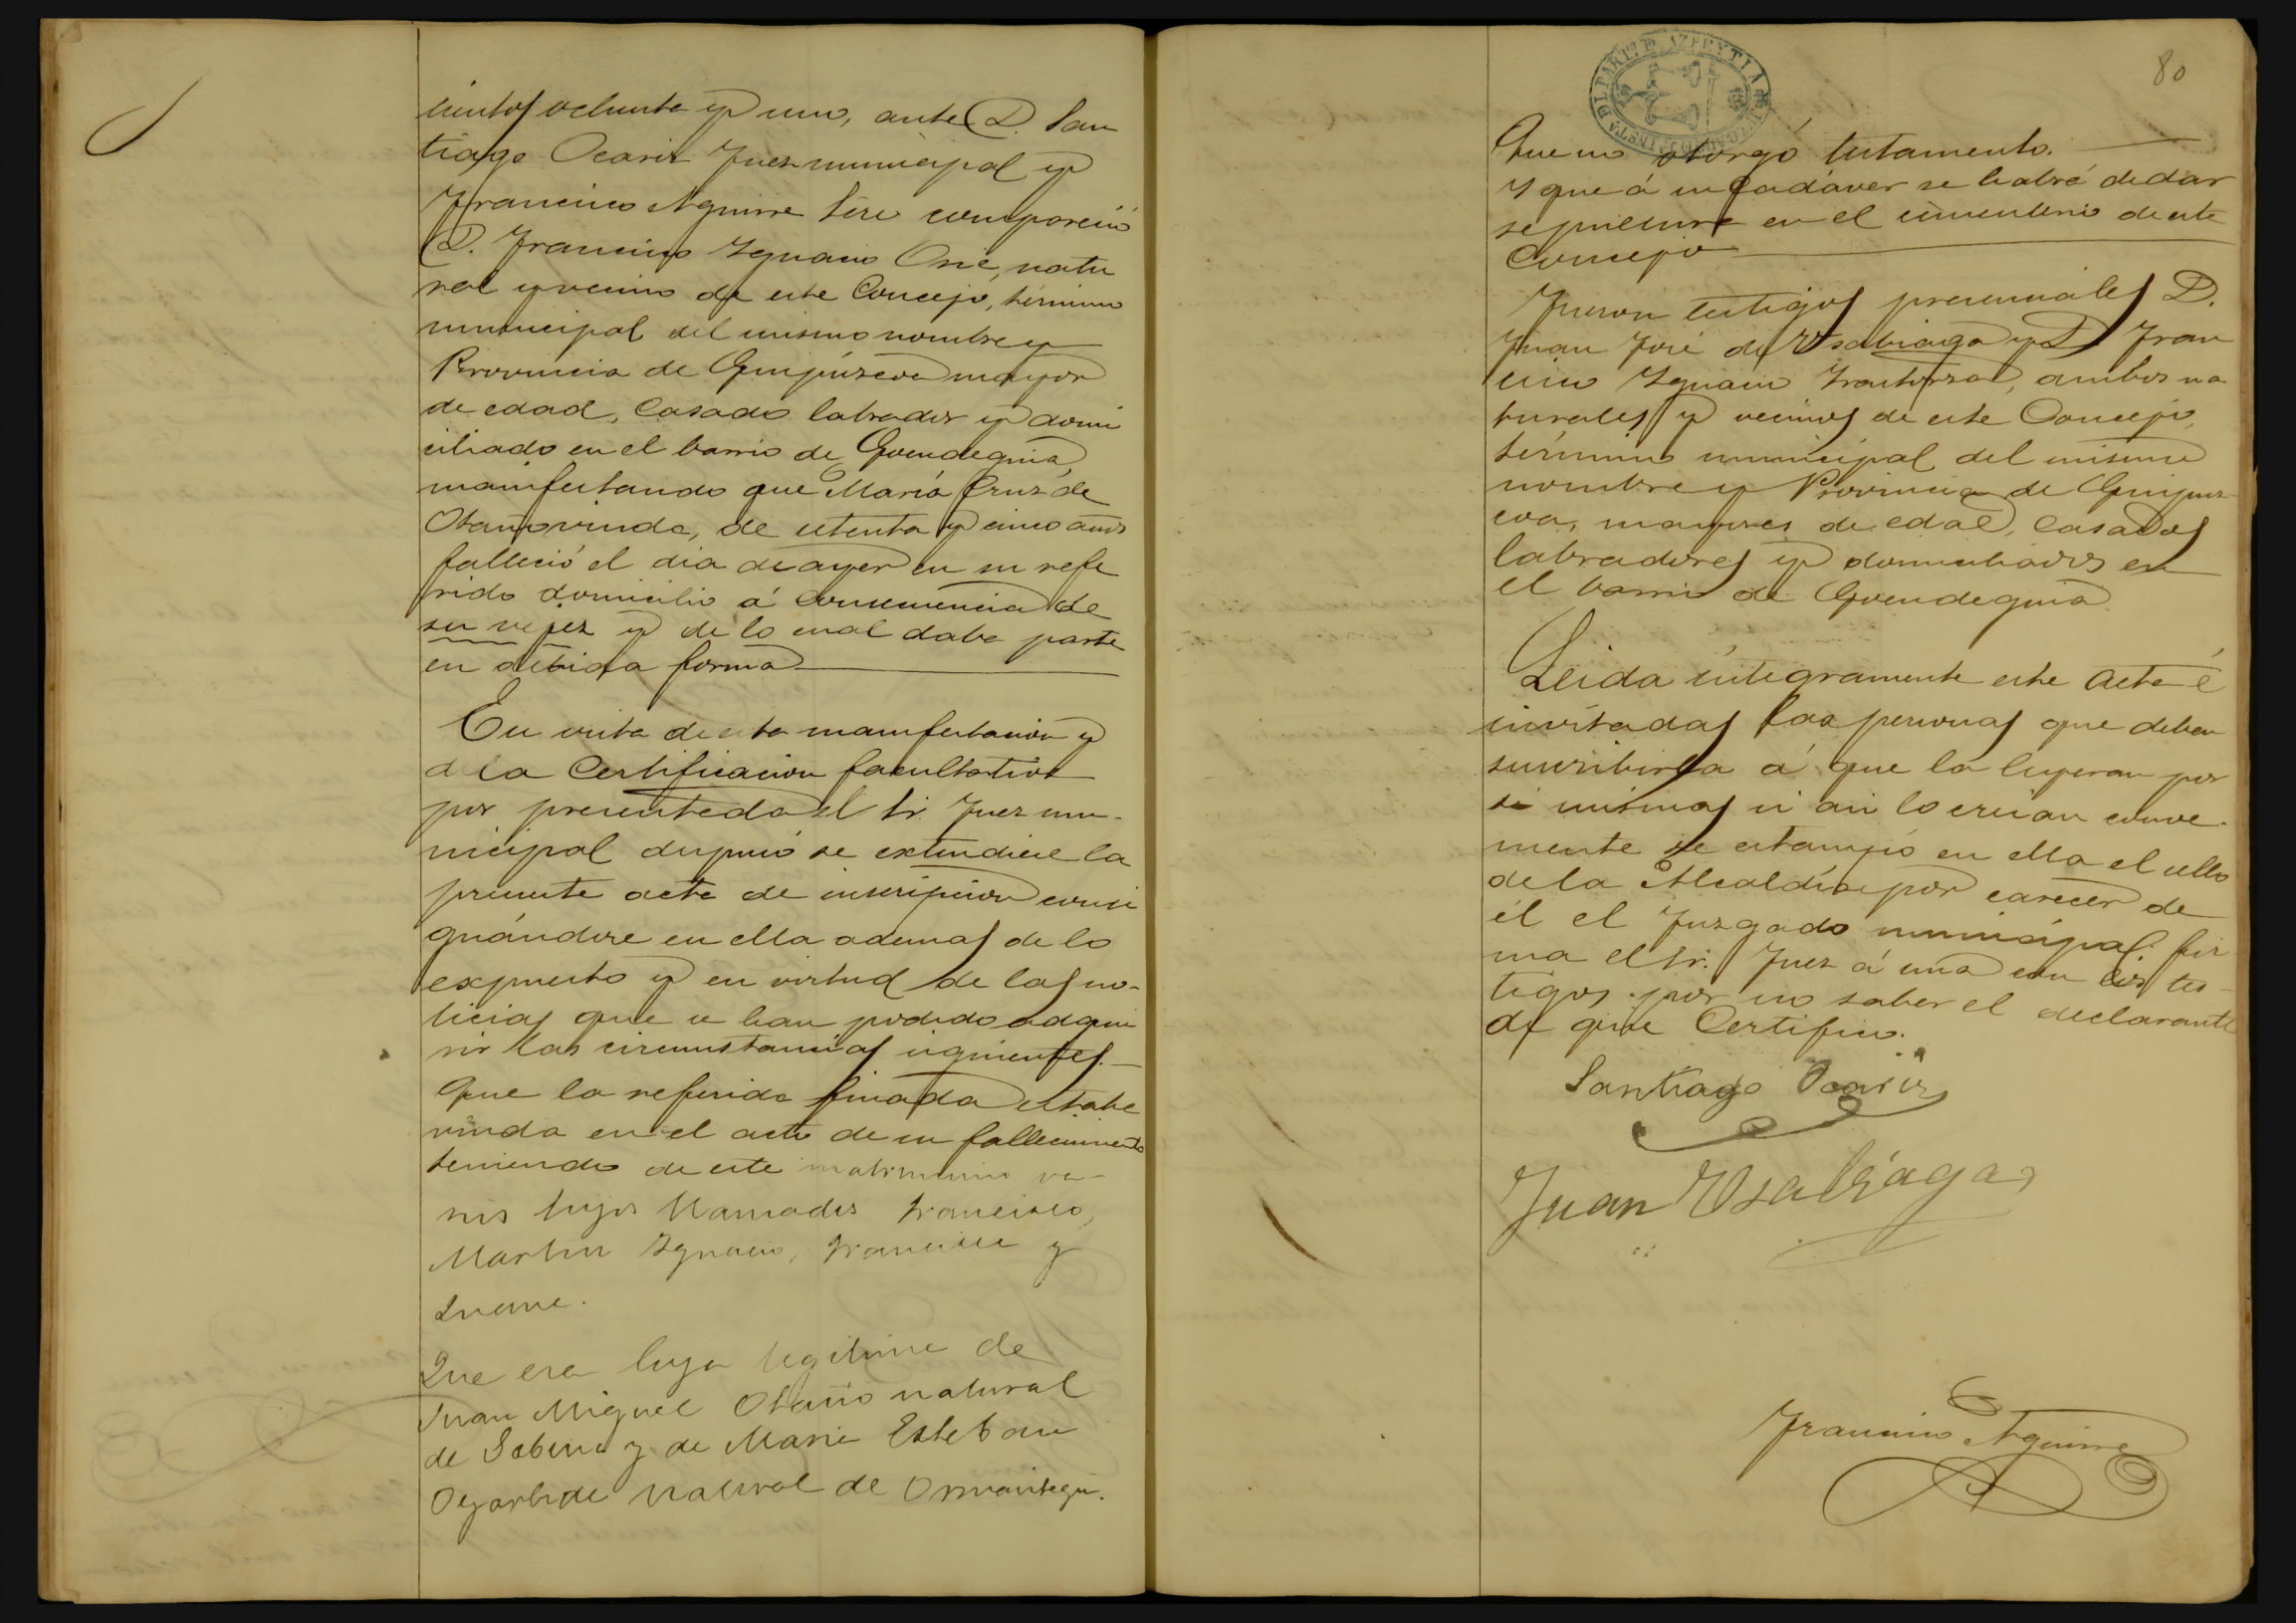 cientos ochenta y uno, ante D. San
tiago Ocariz Juez municipal y
Francisco Aguirre Srio compareció
D. Francisco Ygnacio Orie, natu
ral y vecino de este Concejo, término
municipal del mismo nombre y
Provincia de Guipúzcoa mayor
de edad, Casado labrador y domi
ciliado en el barrio de Goendeguia,
manifestando que María Cruz de
Otaño viuda, de setenta y cinco años
falleció el dia de ayer en su refe
rido domicilio á consecuencia de
su vejez y de lo cual daba parte
en debida forma
En vista de esta manifestacion y
de la Certificacion facultativa
por presentada el Sr. Juez mu-
nicipal dispuso se extendiese la
presente acta de inscripcion consi
gnándose en ella ademas de lo
expuesto y en virtud de las no-
ticias que se han podido adqui
rir las circunstancias siguientes.
Que la referida finada estaba
viuda en el acto de su fallecimiento
teniendo de este matrimonio va-
rios hijos llamados Francisco,
Martin Ygnacio, Francisca y
Juana.
Que era hija legitima de
Juan Miguel Otaño natural
de y de Maria Esteban
natural de Ormaiztegui.
80
Que no otorgó testamento.
Y que á su cadáver se habrá de dar
sepultura en el cementerio de este
Concejo
Fueron testigos presenciales D.
Juan José de Usabiaga y D. Fran
cisco Ygnacio ambos na
turales y vecinos de este Concejo,
término municipal del mismo
nombre y Provincia de Guipuz
coa, mayores de edad, Casados
labradores y domiciliados en
el barrio de Goendeguia
Leida íntegramente esta acta é
invitadas las personas que deben
suscribirla á que la leyeran por
si mismas si asi lo creian conve-
niente se estampó en ella el sello
de la Alcaldía por carecer de
él el Juzgado municipal, fir
ma el Sr. Juez á una con los tes-
tigos por no saber el declarante
de que Certifico.
Santiago Ocariz
Juan Usabiaga
Francisco Aguirre